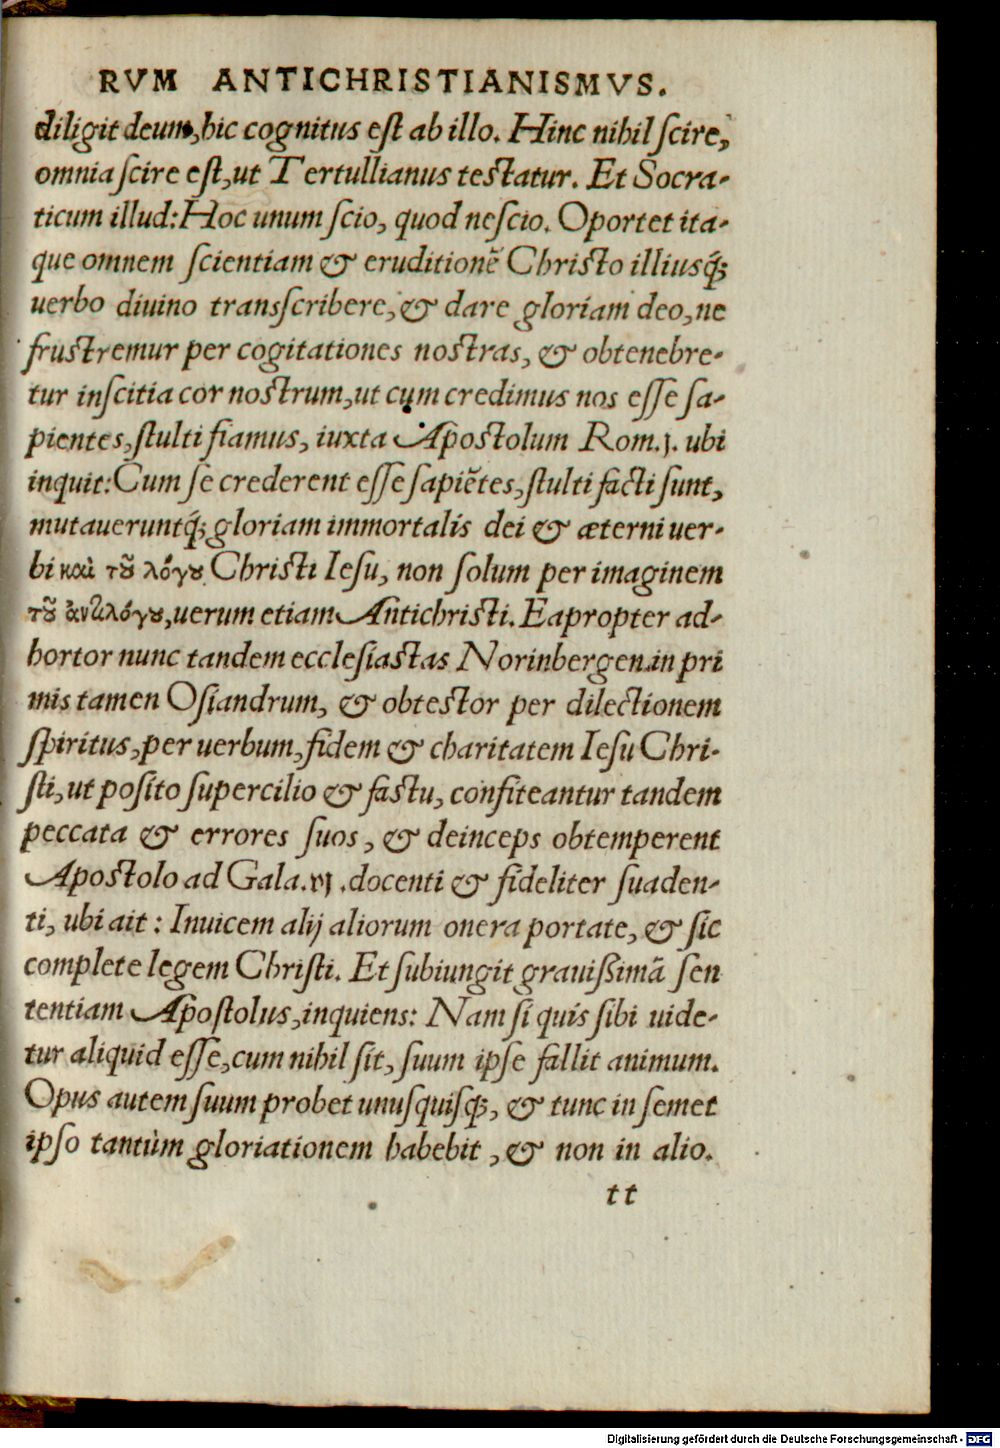 RVM ANTICHRISTIANISMVS.
diligit deum, hic cognitus eſt ab illo. Hinc nihil ſcire,
omnia ſcire eſt, ut Tertullianus teſtatur. Et Socra-
ticum illud: Hoc unum ſcio, quod neſcio. Oportet ita-
que omnem ſcientiam & eruditionē Chriſto illiusq́;
uerbo diuino transſcribere, & dare gloriam deo, ne
fruſtremur per cogitationes noſtras, & obtenebre-
tur inſcitia cor noſtrum, ut cum credimus nos eſſe ſa-
pientes, ſtulti fiamus, iuxta Apoſtolum Rom.j. ubi
inquit: Cum ſe crederent eſſe ſapiētes, ſtulti facti ſunt,
mutaueruntq́; gloriam immortalis dei & æterni uer-
bi καὶ τȣ͂ λόγȣ Chriſti Ieſu, non ſolum per imaginem
τȣ͂ ἀντιλόγȣ, uerum etiam Antichriſti. Eapropter ad-
hortor nunc tandem eccleſiaſtas Norinbergen. in pri
mis tamen Oſiandrum, & obteſtor per dilectionem
ſpiritus, per uerbum, fidem & charitatem Ieſu Chri-
ſti, ut poſito ſupercilio & faſtu, confiteantur tandem
peccata & errores ſuos, & deinceps obtemperent
Apoſtolo ad Gala.vj. docenti & fideliter ſuaden-
ti, ubi ait: Inuicem alij aliorum onera portate, & ſic
complete legem Chriſti. Et ſubiungit grauißimā ſen
tentiam Apoſtolus, inquiens: Nam ſi quis ſibi uide-
tur aliquid eſſe, cum nihil ſit, ſuum ipſe fallit animum.
Opus autem ſuum probet unuſquiſq́;, & tunc in ſemet
ipſo tantùm gloriationem habebit, & non in alio.
tt
Digitalisierung gefördert durch die Deutsche Forschungsgemeinschaft - DFG